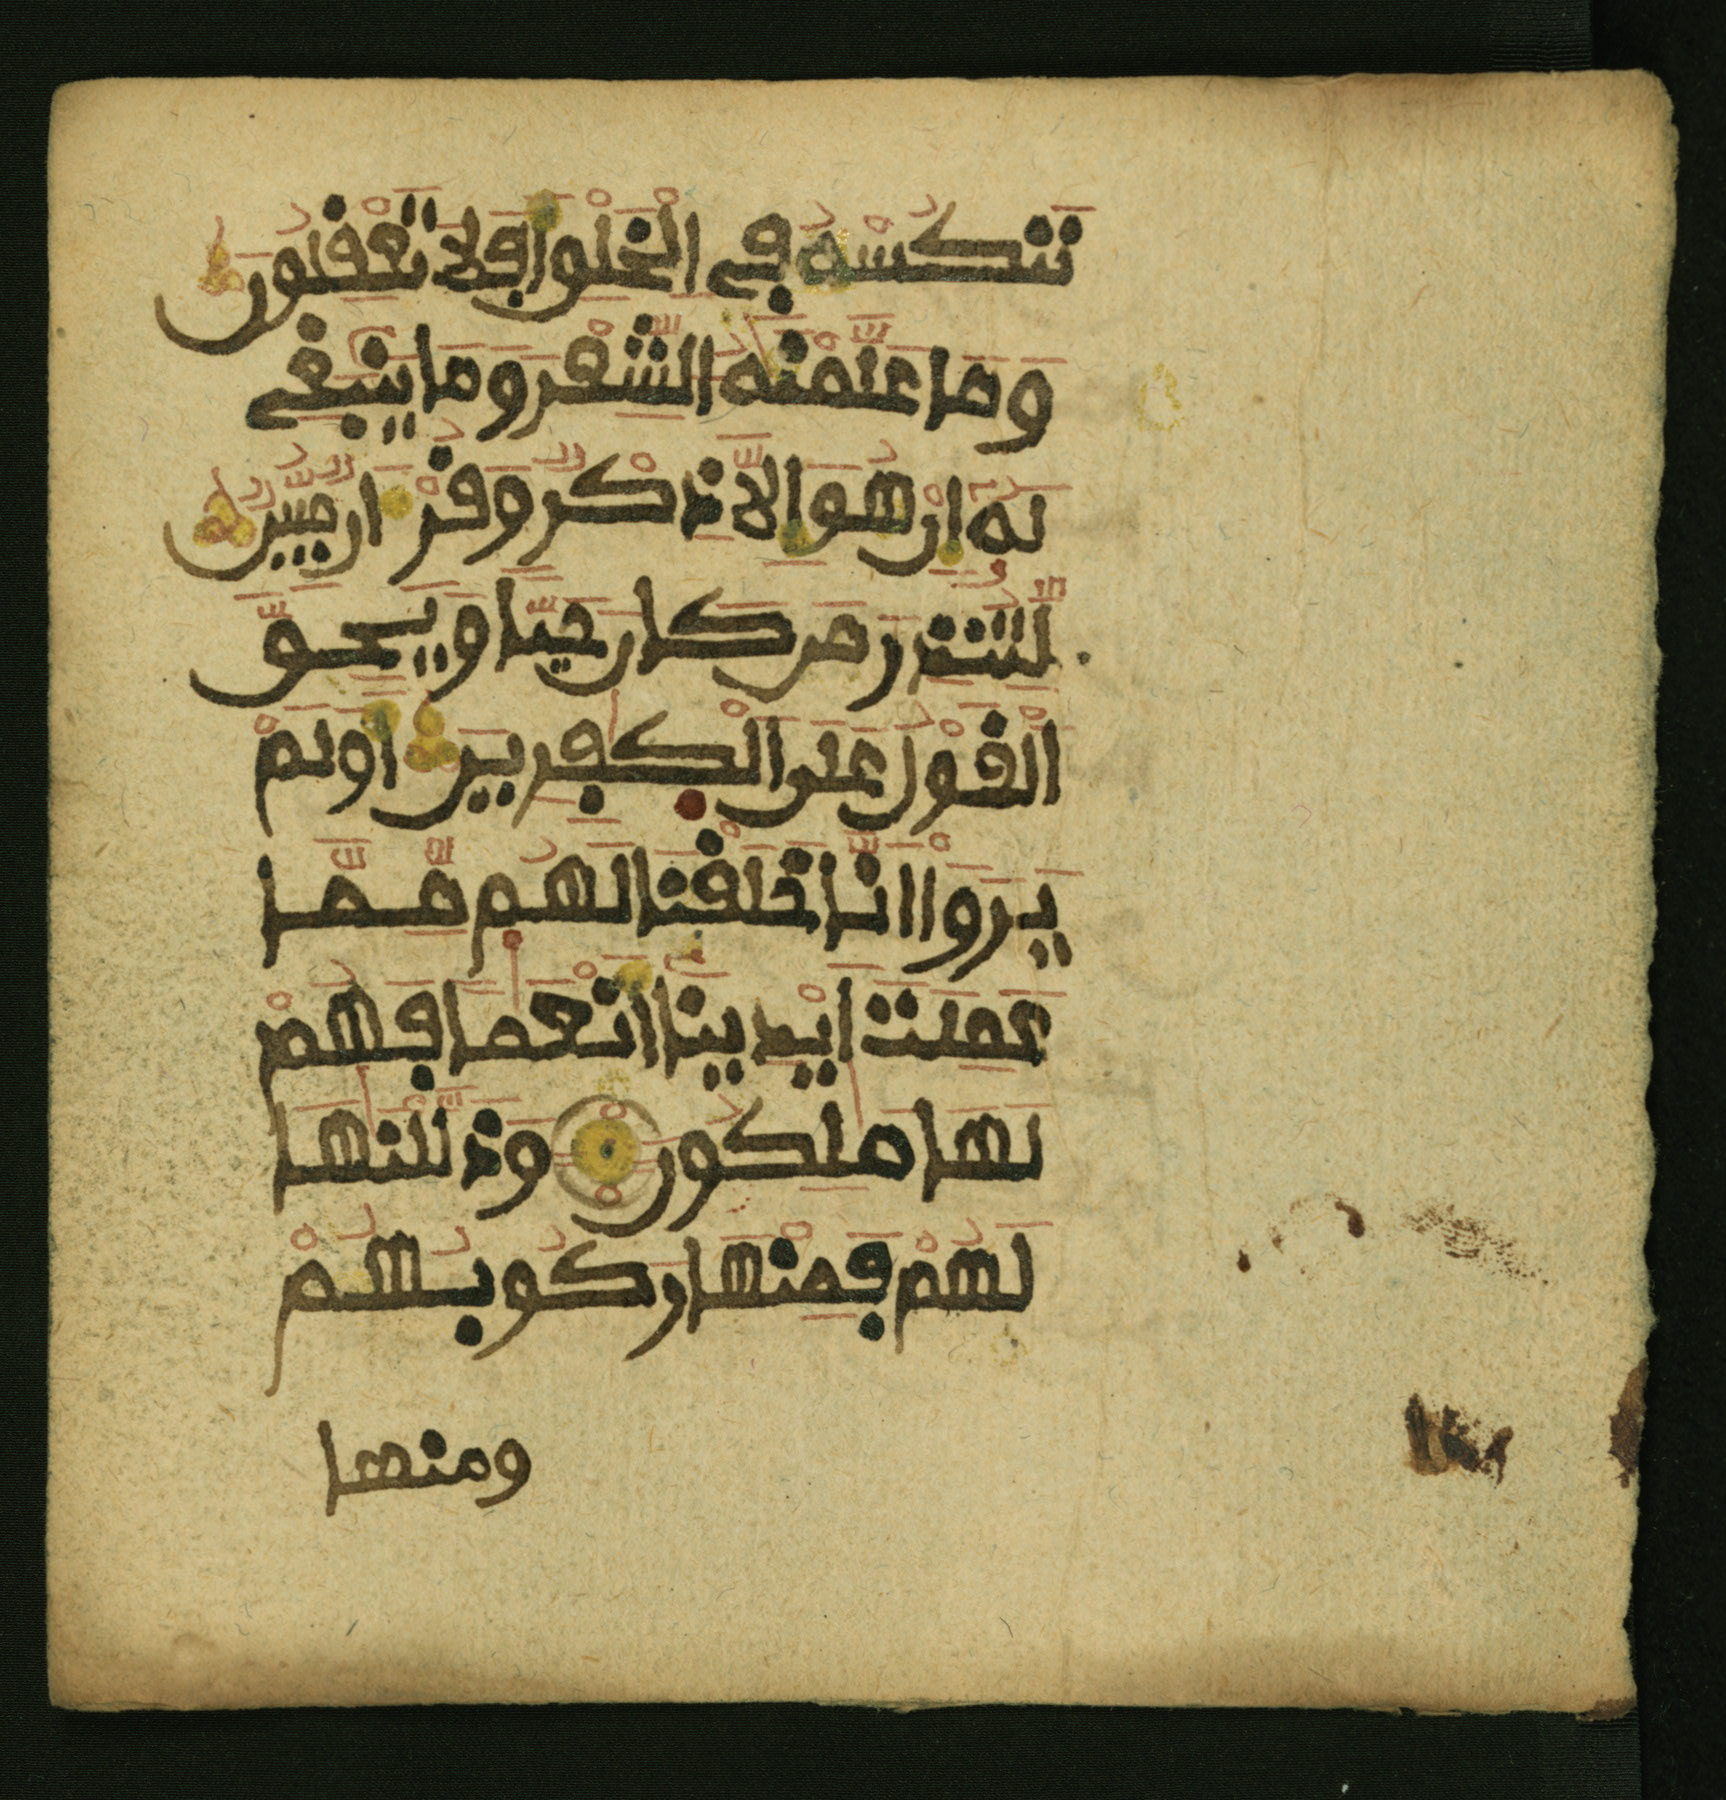 ننكسه في الخلق افلا تعقلون
وما علمنه الشعر وما ينبغي
له ان هو الا ذكر وقران مبين
لتنذر من كان حيا ويحق
القول على الكفرين اولم
يروا انا خلقنا لهم مما
عملت ايدينا انعما فهم
لها ملكون وذللنها
لهم فمنها ركوبهم
ومنها